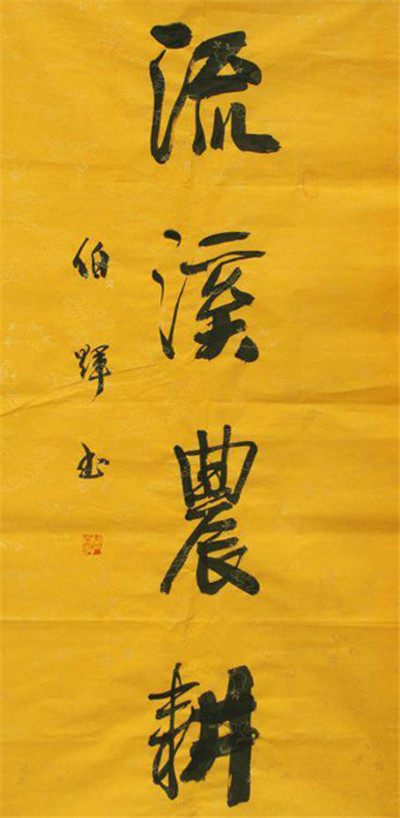 流溪農耕
伯輝书